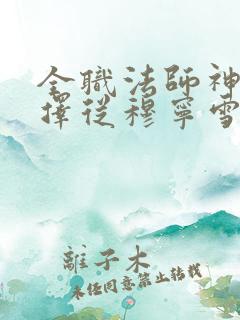 全職法師神
擇從穆寧雪
離子木
未經同意禁止轉載